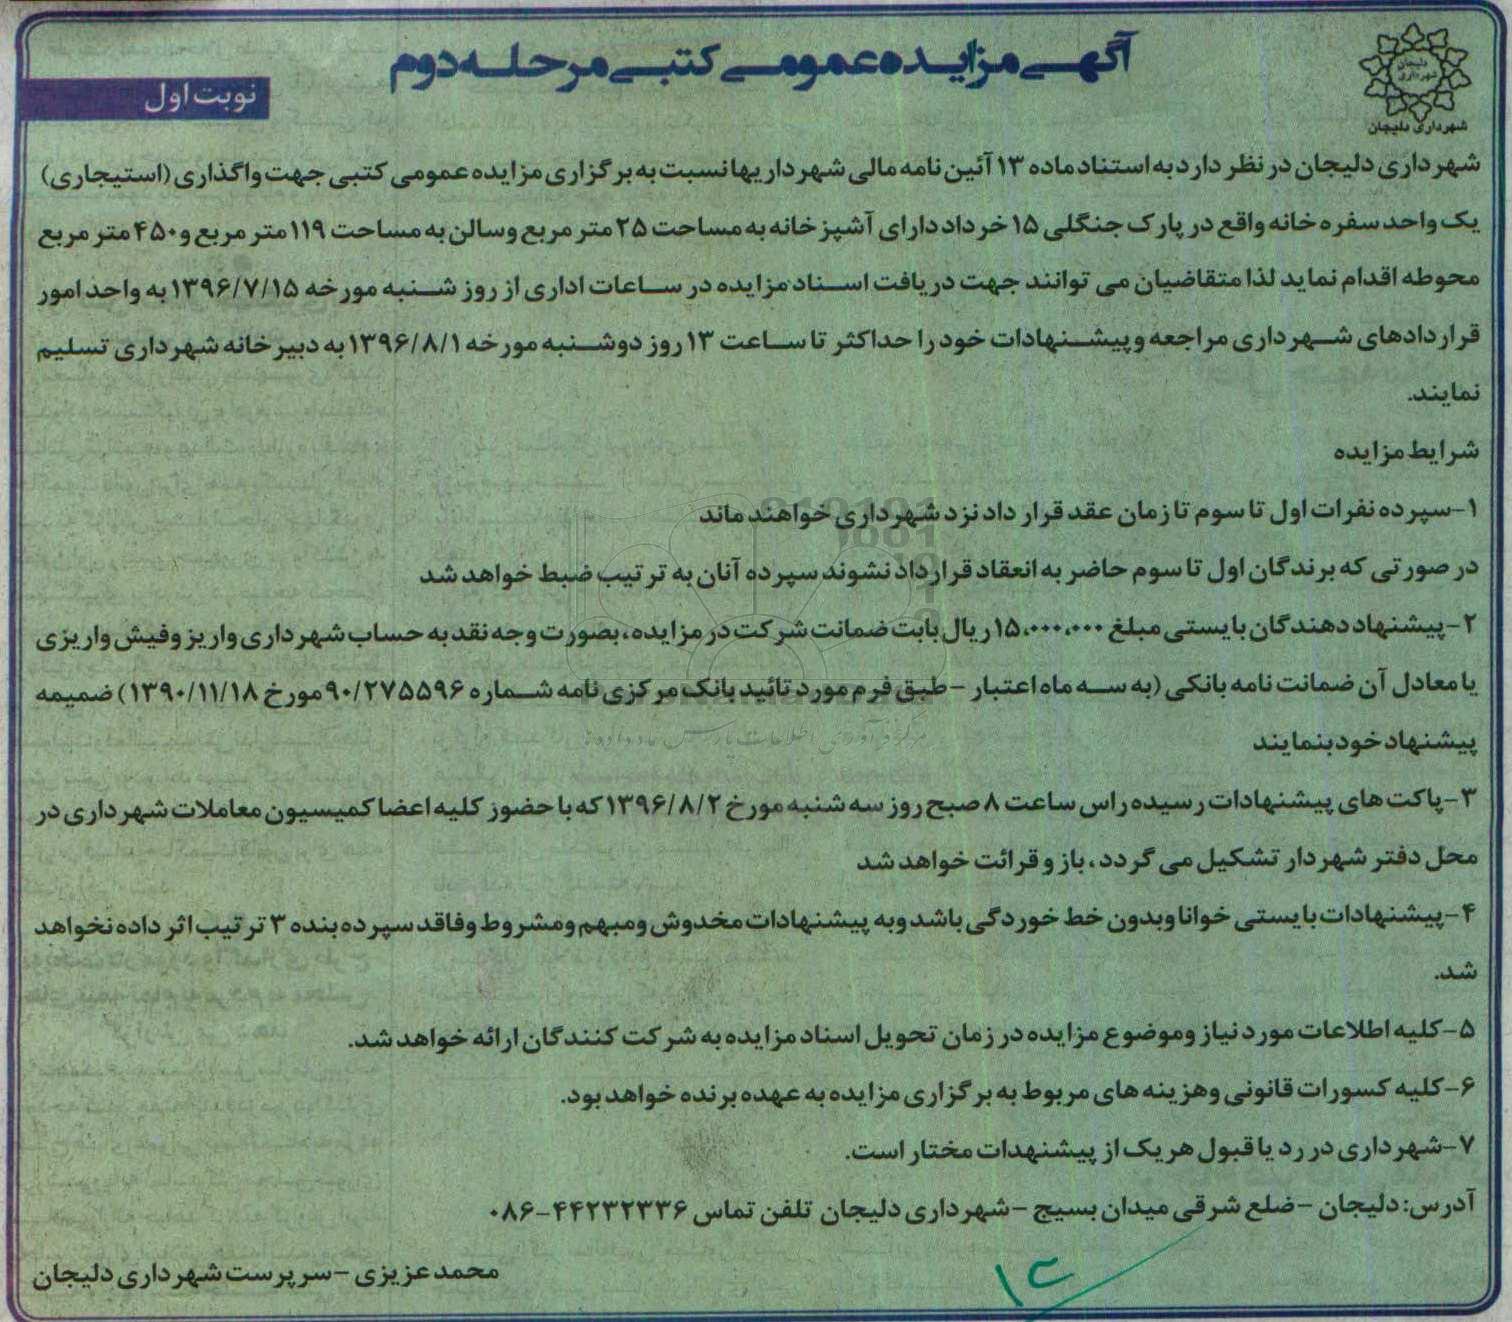 آگهی مزایده عمومی کتبی مرحله دوم
دلیجان
شهرداری
شهرداری دلیجان
نوبت اول
شهرداری دلیجان در نظر دارد به استناد ماده ۱۳ آئین نامه مالی شهرداریها نسبت به برگزاری مزایده عمومی کتبی جهت واگذاری (استیجاری)
یک واحد سفره خانه واقع در پارک جنگلی ۱۵ خرداد دارای آشپزخانه به مساحت ۲۵ متر مربع و سالن به مساحت ۱۱۹ متر مربع و ۴۵۰ متر مربع
محوطه اقدام نماید لذا متقاضیان می توانند جهت دریافت اسناد مزایده در ساعات اداری از روز شنبه مورخه ۱۳۹۶/۷/۱۵ به واحد امور
قراردادهای شهرداری مراجعه و پیشنهادات خود را حداکثر تا ساعت ۱۳ روز دوشنبه مورخه ۱۳۹۶/۸/۱ به دبیرخانه شهرداری تسلیم
نمایند.
شرایط مزایده
۱-سپرده نفرات اول تا سوم تا زمان عقد قرار داد نزد شهرداری خواهند ماند
در صورتی که برندگان اول تا سوم حاضر به انعقاد قرارداد نشوند سپرده آنان به ترتیب ضبط خواهد شد
۲-پیشنهاد دهندگان بایستی مبلغ ۱۵.۰۰۰.۰۰۰ ریال بابت ضمانت شرکت در مزایده، بصورت وجه نقد به حساب شهرداری واریز و فیش واریزی
یا معادل آن ضمانت نامه بانکی (به سه ماه اعتبار -طبق فرم مورد تائید بانک مرکزی نامه شماره ۹۰/۲۷۵۵۹۶ مورخ ۱۳۹۰/۱۱/۱۸) ضمیمه
پیشنهاد خود بنمایند
۳-پاکت های پیشنهادات رسیده راس ساعت ۸ صبح روز سه شنبه مورخ ۱۳۹۶/۸/۲ که با حضور کلیه اعضا کمیسیون معاملات شهرداری در
محل دفتر شهردار تشکیل می گردد، باز و قرائت خواهد شد
۴-پیشنهادات بایستی خوانا و بدون خط خوردگی باشد و به پیشنهادات مخدوش و مبهم و مشروط و فاقد سپرده بنده ۳ ترتیب اثر داده نخواهد
شد.
۵-کلیه اطلاعات مورد نیاز و موضوع مزایده در زمان تحویل اسناد مزایده به شرکت کنندگان ارائه خواهد شد.
۶-کلیه کسورات قانونی و هزینه های مربوط به برگزاری مزایده به عهده برنده خواهد بود.
۷-شهرداری در رد یا قبول هریک از پیشنهدات مختار است.
آدرس: دلیجان -ضلع شرقی میدان بسیج -شهرداری دلیجان تلفن تماس ۴۴۲۳۲۳۳۶-۰۸۶
محمد عزیزی -سرپرست شهرداری دلیجان